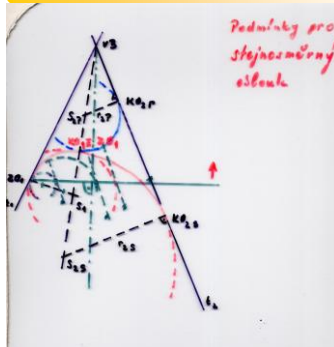 Podmínky pro
stejnosměrný
oblouk
VB
KO₂P
S₂P
r₂P
ZO₁
S₁
KO₂S
r₂S
S₂S
t₂